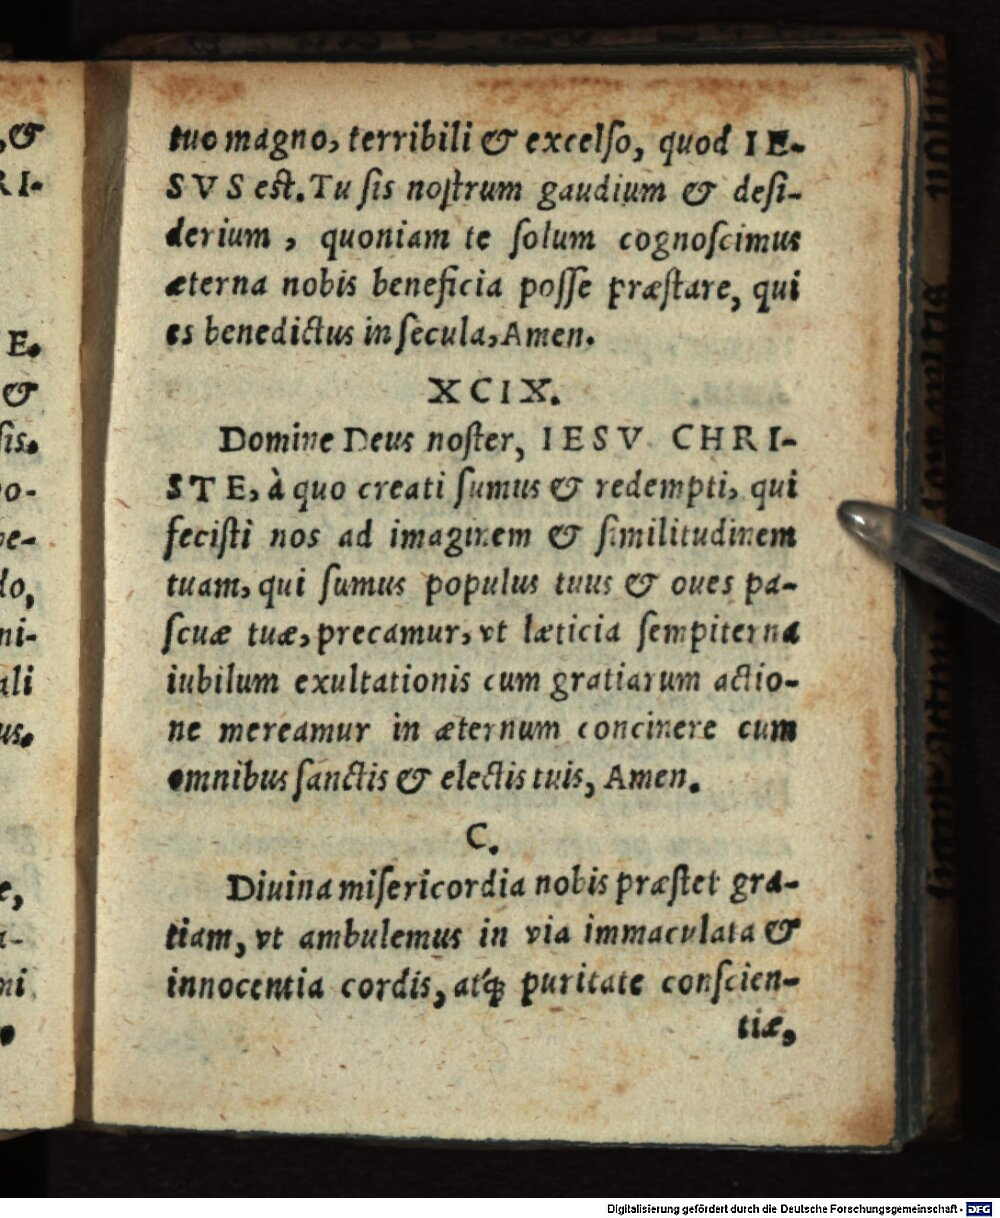 tuo magno, terribili & excelſo, quod IE-
SVS est. Tu ſis noſtrum gaudium & deſi-
derium, quoniam te ſolum cognoſcimus
æterna nobis beneficia poſſe præſtare, qui
es benedictus in ſecula, Amen.
XCIX.
Domine Deus noſter, IESV CHRI-
STE, à quo creati ſumus & redempti, qui
feciſti nos ad imaginem & ſimilitudinem
tuam, qui ſumus populus tuus & oues pa-
ſcuæ tuæ, precamur, vt læticia ſempiterna
iubilum exultationis cum gratiarum actio-
ne mereamur in æternum concinere cum
omnibus ſanctis & electis tuis, Amen.
C.
Diuina miſericordia nobis præſtet gra-
tiam, vt ambulemus in via immaculata &
innocentia cordis, atq́; puritate conſcien-
tiæ,
Digitalisierung gefördert durch die Deutsche Forschungsgemeinschaft - DFG